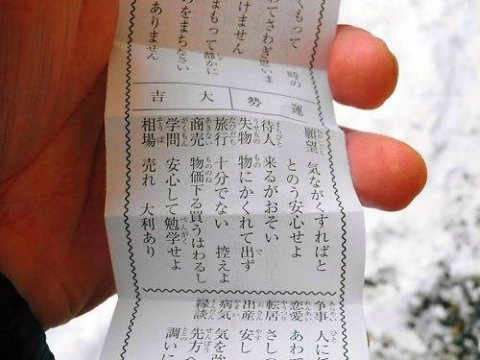 くもって 時の
わてさわぎ思いま
けません
まもって静かに
をまちなさい
ありません
運勢 大吉
願望 気ながくすればと
とのう安心せよ
待人 来るがおそい
失物 物にかくれて出ず
旅行 十分でない 控えよ
商売 物価下る買うはわるし
学問 安心して勉学せよ
相場 売れ 大利あり
争事 人に
恋愛 あわ
転居 さしつ
出産 安し
病気 気を
縁談 先方
調いに